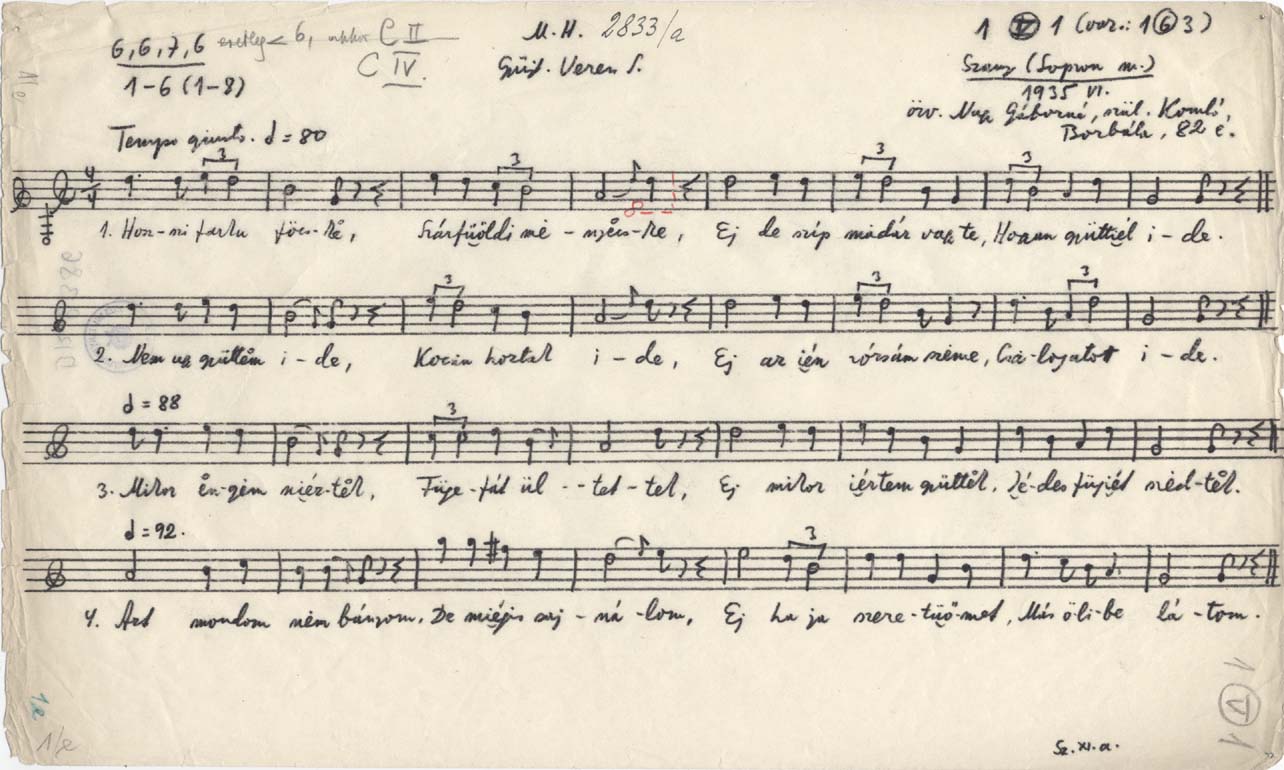 6,6,7,6 esetleg < 6, akkor C II
C IV.
1-6 (1-8)
M. H. 2833/a
Gyüjt. Veress S.
1 V 1 (var.: 1 6 3)
Szany (Sopron m.)
1935 VI.
özv. Nagy Gáborné, szül. Komló,
Borbála, 82 é.
Tempo giusto. = 80
3 3 3 3
1. Hosz-szi farku föcs-ke, Szárfüöldi me-nyecs-ke, Ej de szip madár vagy te, Hogyan gyüttiel i-de.
3 3 3
2. Nem ugy gyüttem i-de, Kocin hoztak i-de, Ej az ién rózsám szeme, Csá-logatot i-de.
= 88
3
3. Mikor en-gem niéz-tel, Füge-fát ül--tet-tel, Ej mikor iértem gyüttel, Zé-des fügiét szed-tel.
= 92.
3
4. Azt mondom nem bánom, De miégis saj-ná-lom, Ej ha ja szere-tüömet, Más öli-be lá-tom.
1 V 1
Sz. XI. a.